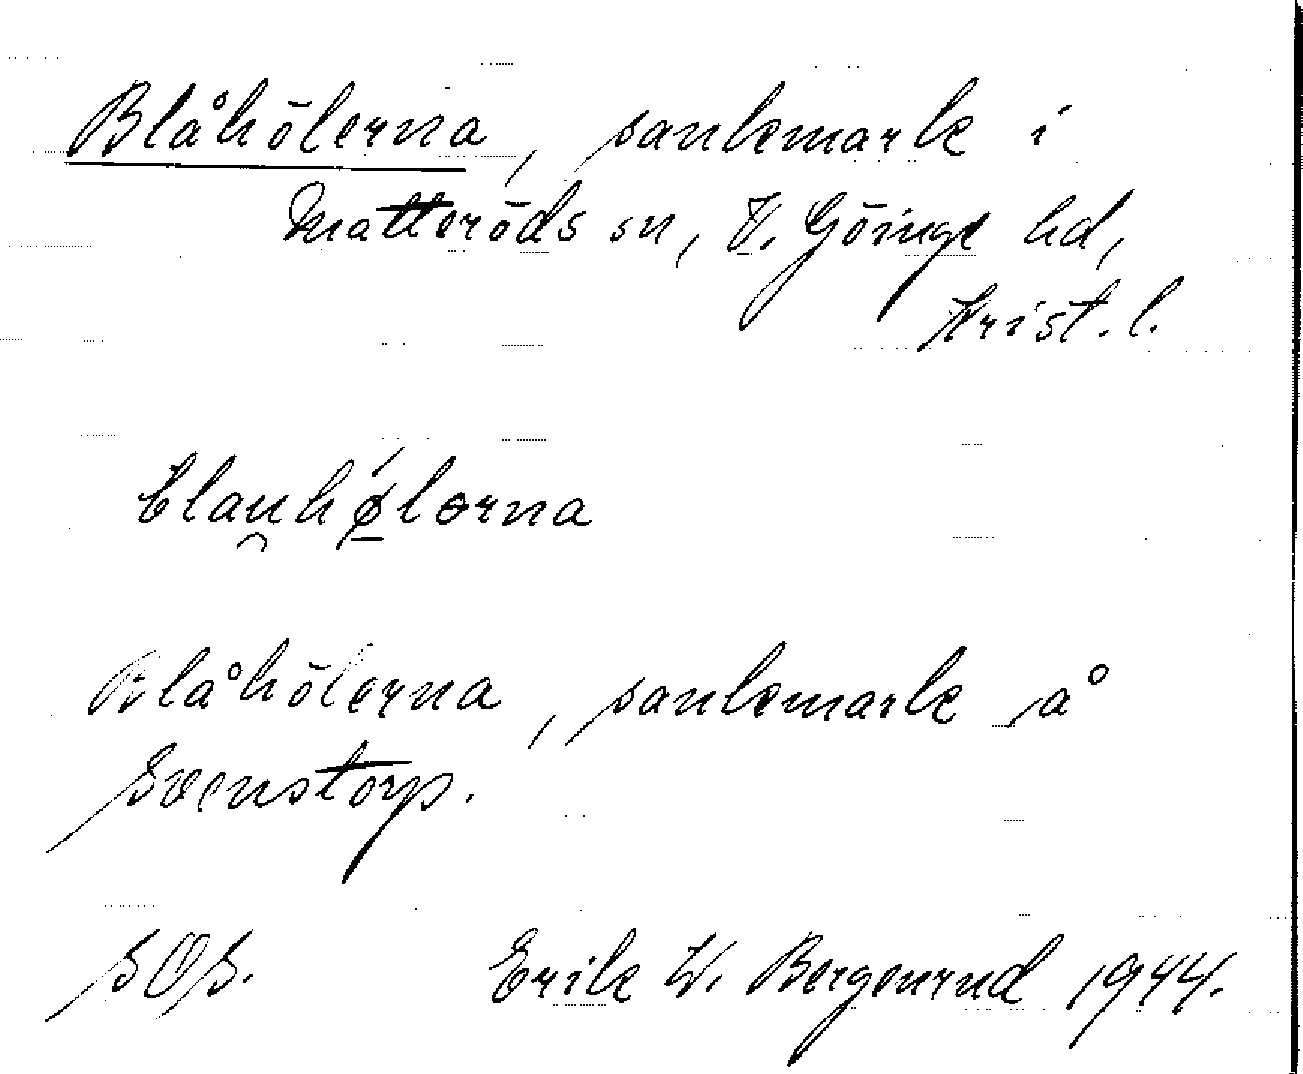 Blåhölerna, sankmark i
Matteröds sn, V. Göinge hd,
Krist. l.
blau̯hǿ̲lərna
Blåhölerna, sankmark å
Svenstorp.
SOS. Erik W. Bergenrud 1944.